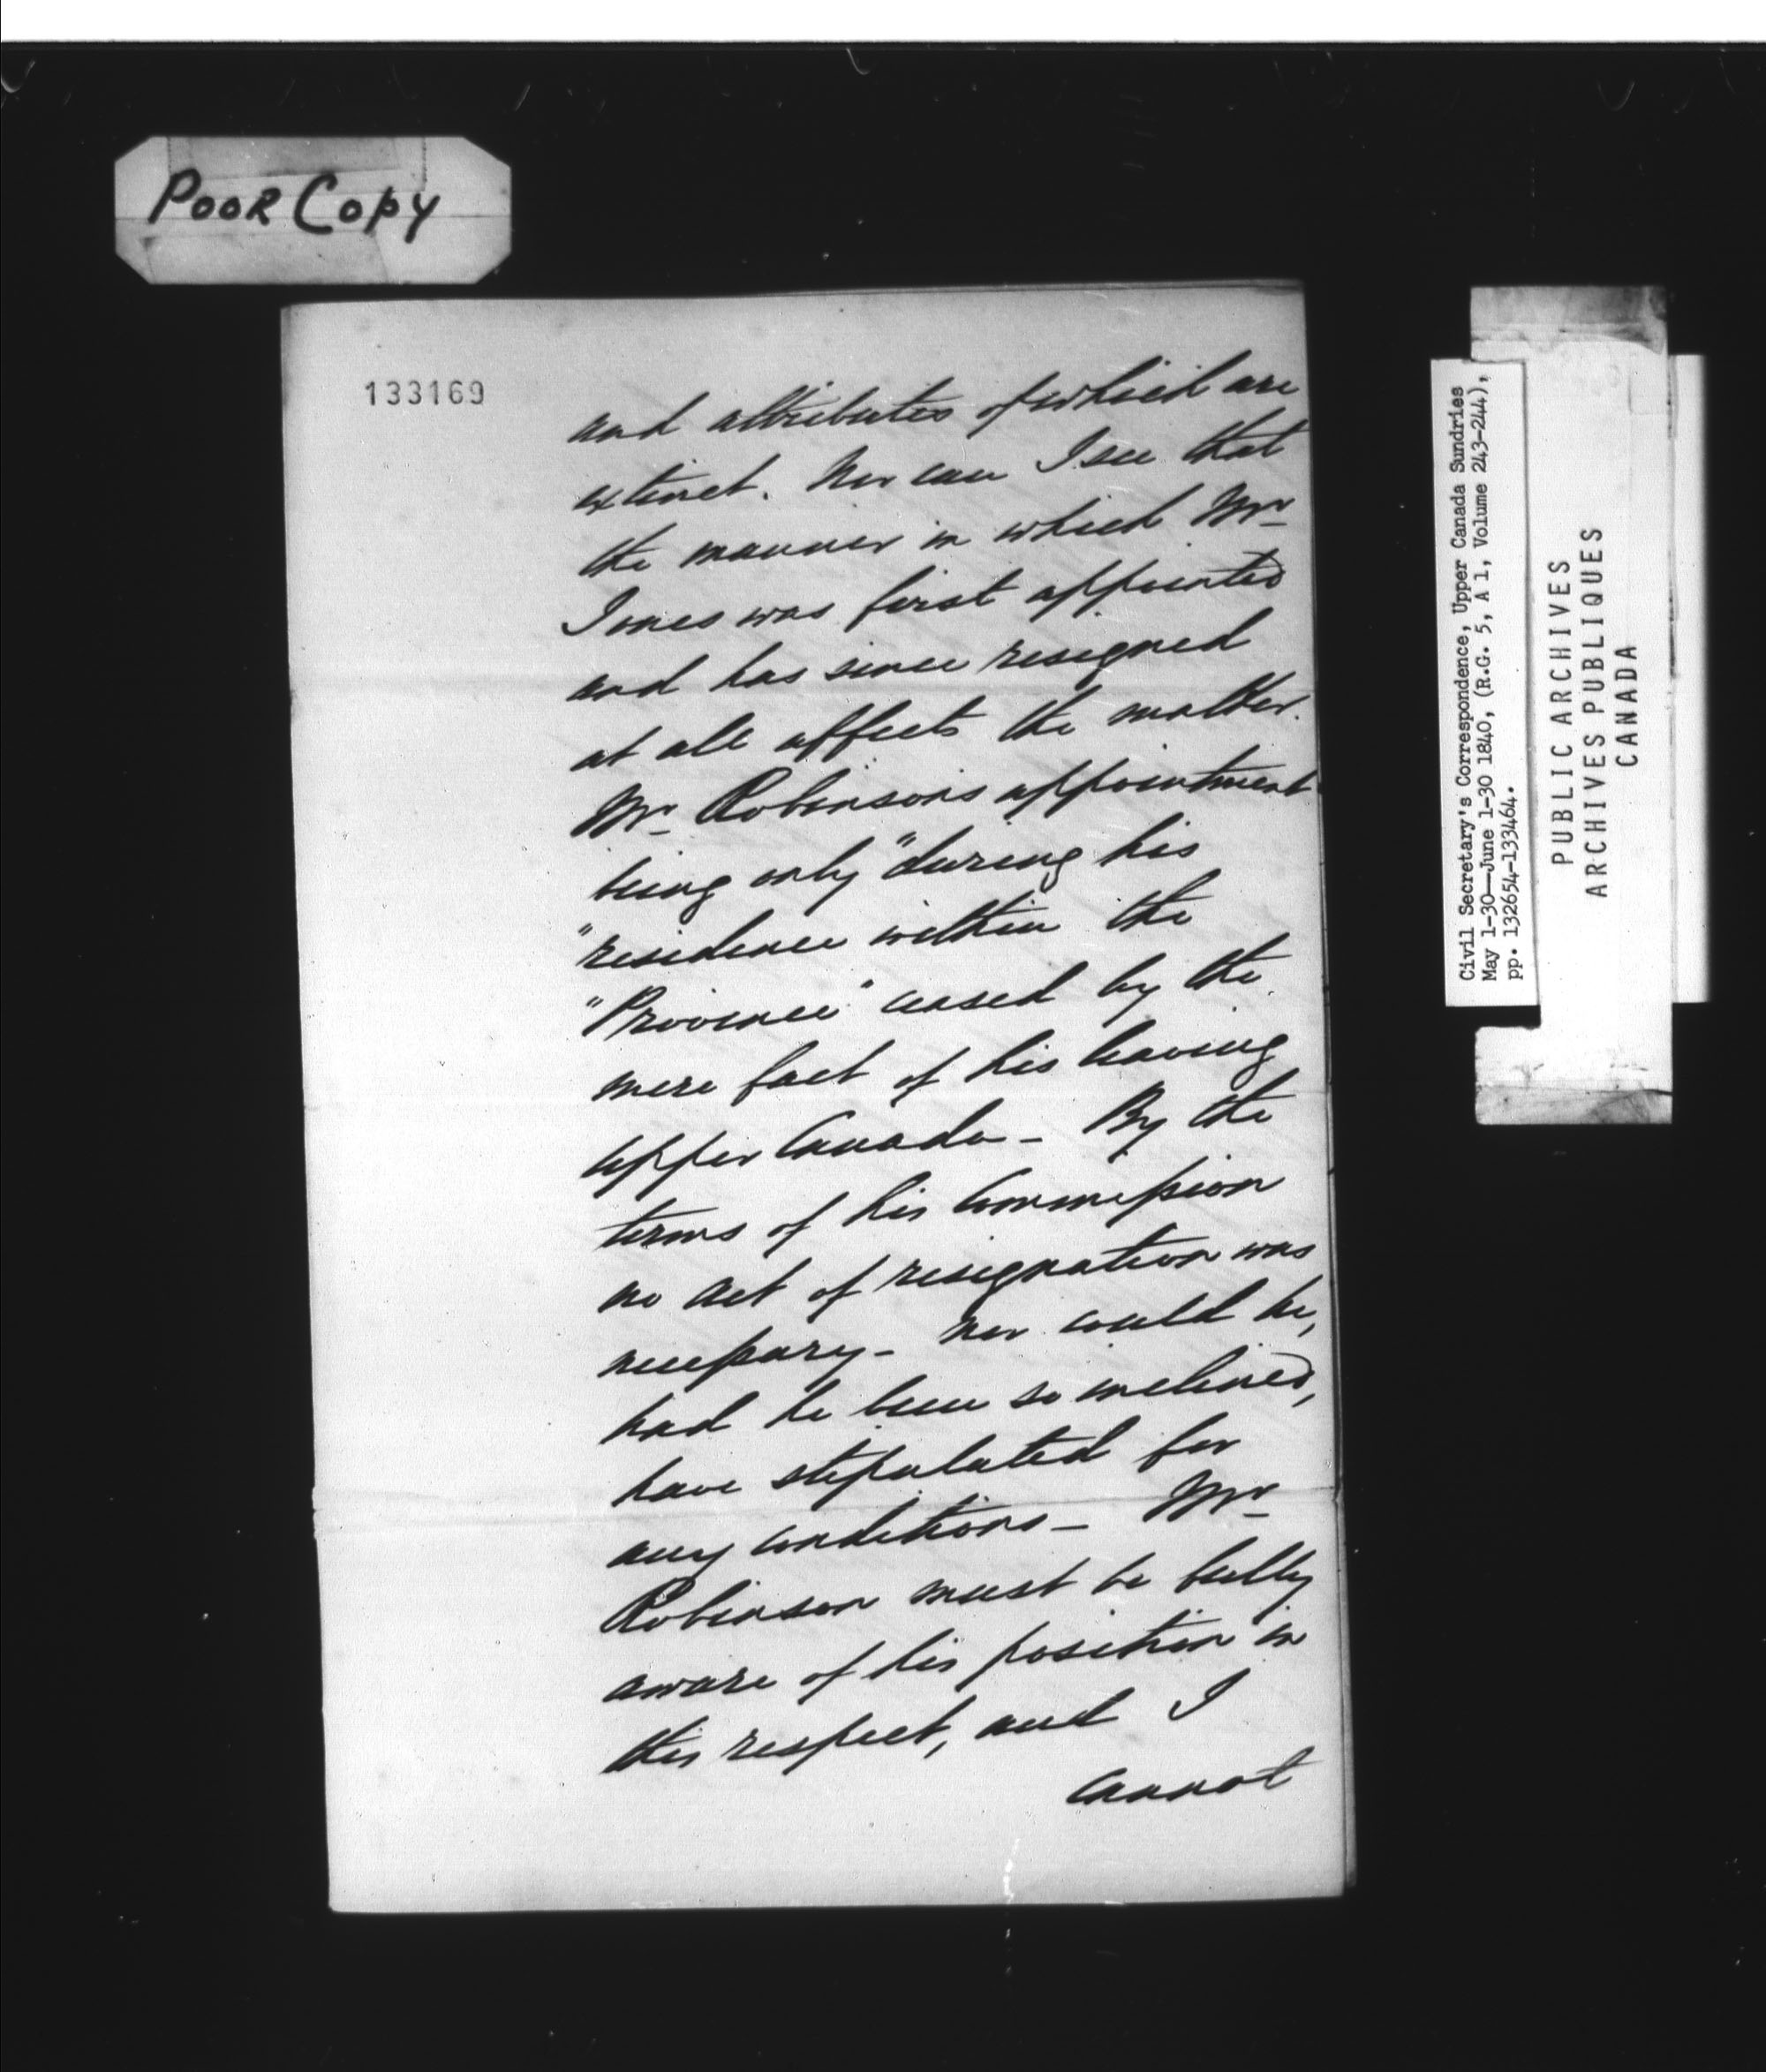 POOR COPY
133169
and attributes of which are
extinct. Nor can I see that
the manner in which Mr
Jones was first appointed
and has since resigned
at all affects the matter.
Mr Robinson's appointment
being only "during his
"residence within the
"Province" ceased by the
mere fact of his leaving
Upper Canada - By the
terms of his Commission
no act of resignation was
necessary - nor could he,
had he been so inclined,
have stipulated for
any conditions - Mr
Robinson must be fully
aware of his position in
this respect, and I
cannot
Civil Secretary's Correspondence, Upper Canada Sundries
May 1-30—June 1-30 1840, (R.G. 5, A 1, Volume 243-244),
pp. 132654-133464.
PUBLIC ARCHIVES
ARCHIVES PUBLIQUES
CANADA